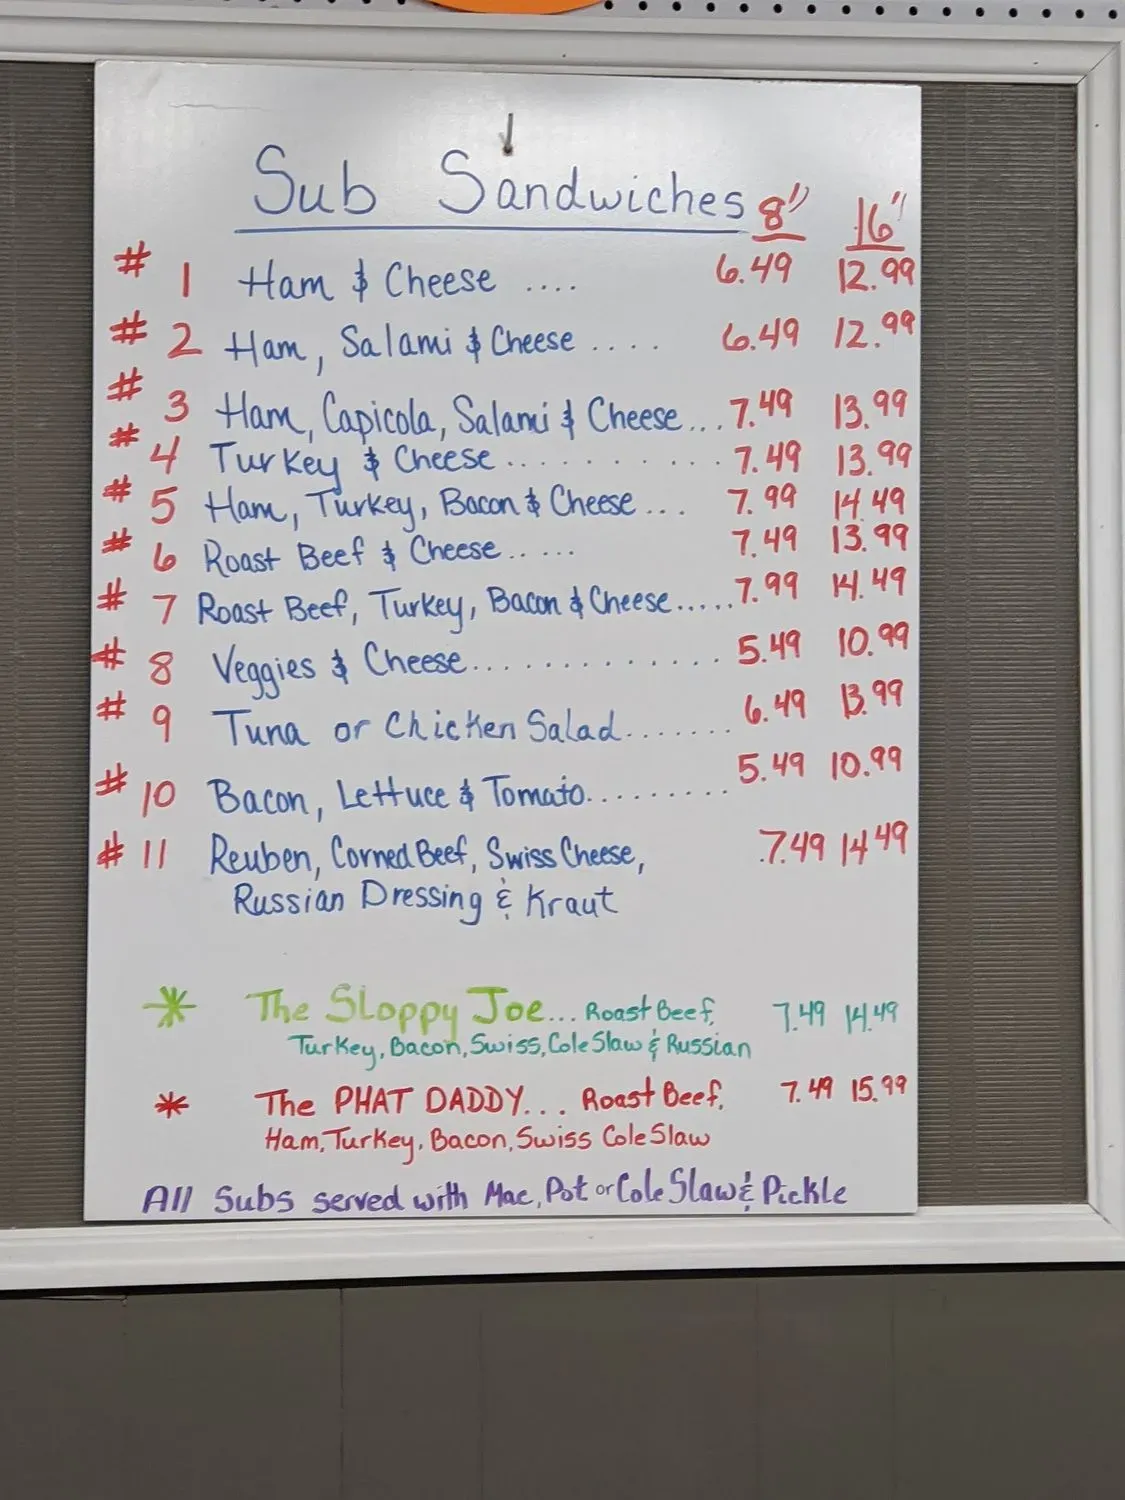 Sub Sandwiches 8" 16"
# 1 Ham & Cheese .... 6.49 12.99
# 2 Ham, Salami & Cheese .... 6.49 12.99
# 3 Ham, Capicola, Salami & Cheese... 7.49 13.99
# 4 Turkey & Cheese .......... 7.49 13.99
# 5 Ham, Turkey, Bacon & Cheese ... 7.99 14.49
# 6 Roast Beef & Cheese ..... 7.49 13.99
# 7 Roast Beef, Turkey, Bacon & Cheese ..... 7.99 14.49
# 8 Veggies & Cheese ............. 5.49 10.99
# 9 Tuna or Chicken Salad ....... 6.49 13.99
# 10 Bacon, Lettuce & Tomato ......... 5.49 10.99
# 11 Reuben, Corned Beef, Swiss Cheese, 7.49 14.49
Russian Dressing & Kraut
* The Sloppy Joe... Roast Beef, 7.49 14.49
Turkey, Bacon, Swiss, Cole Slaw & Russian
* The PHAT DADDY... Roast Beef, 7.49 15.99
Ham, Turkey, Bacon, Swiss Cole Slaw
All Subs served with Mac, Pot or Cole Slaw & Pickle